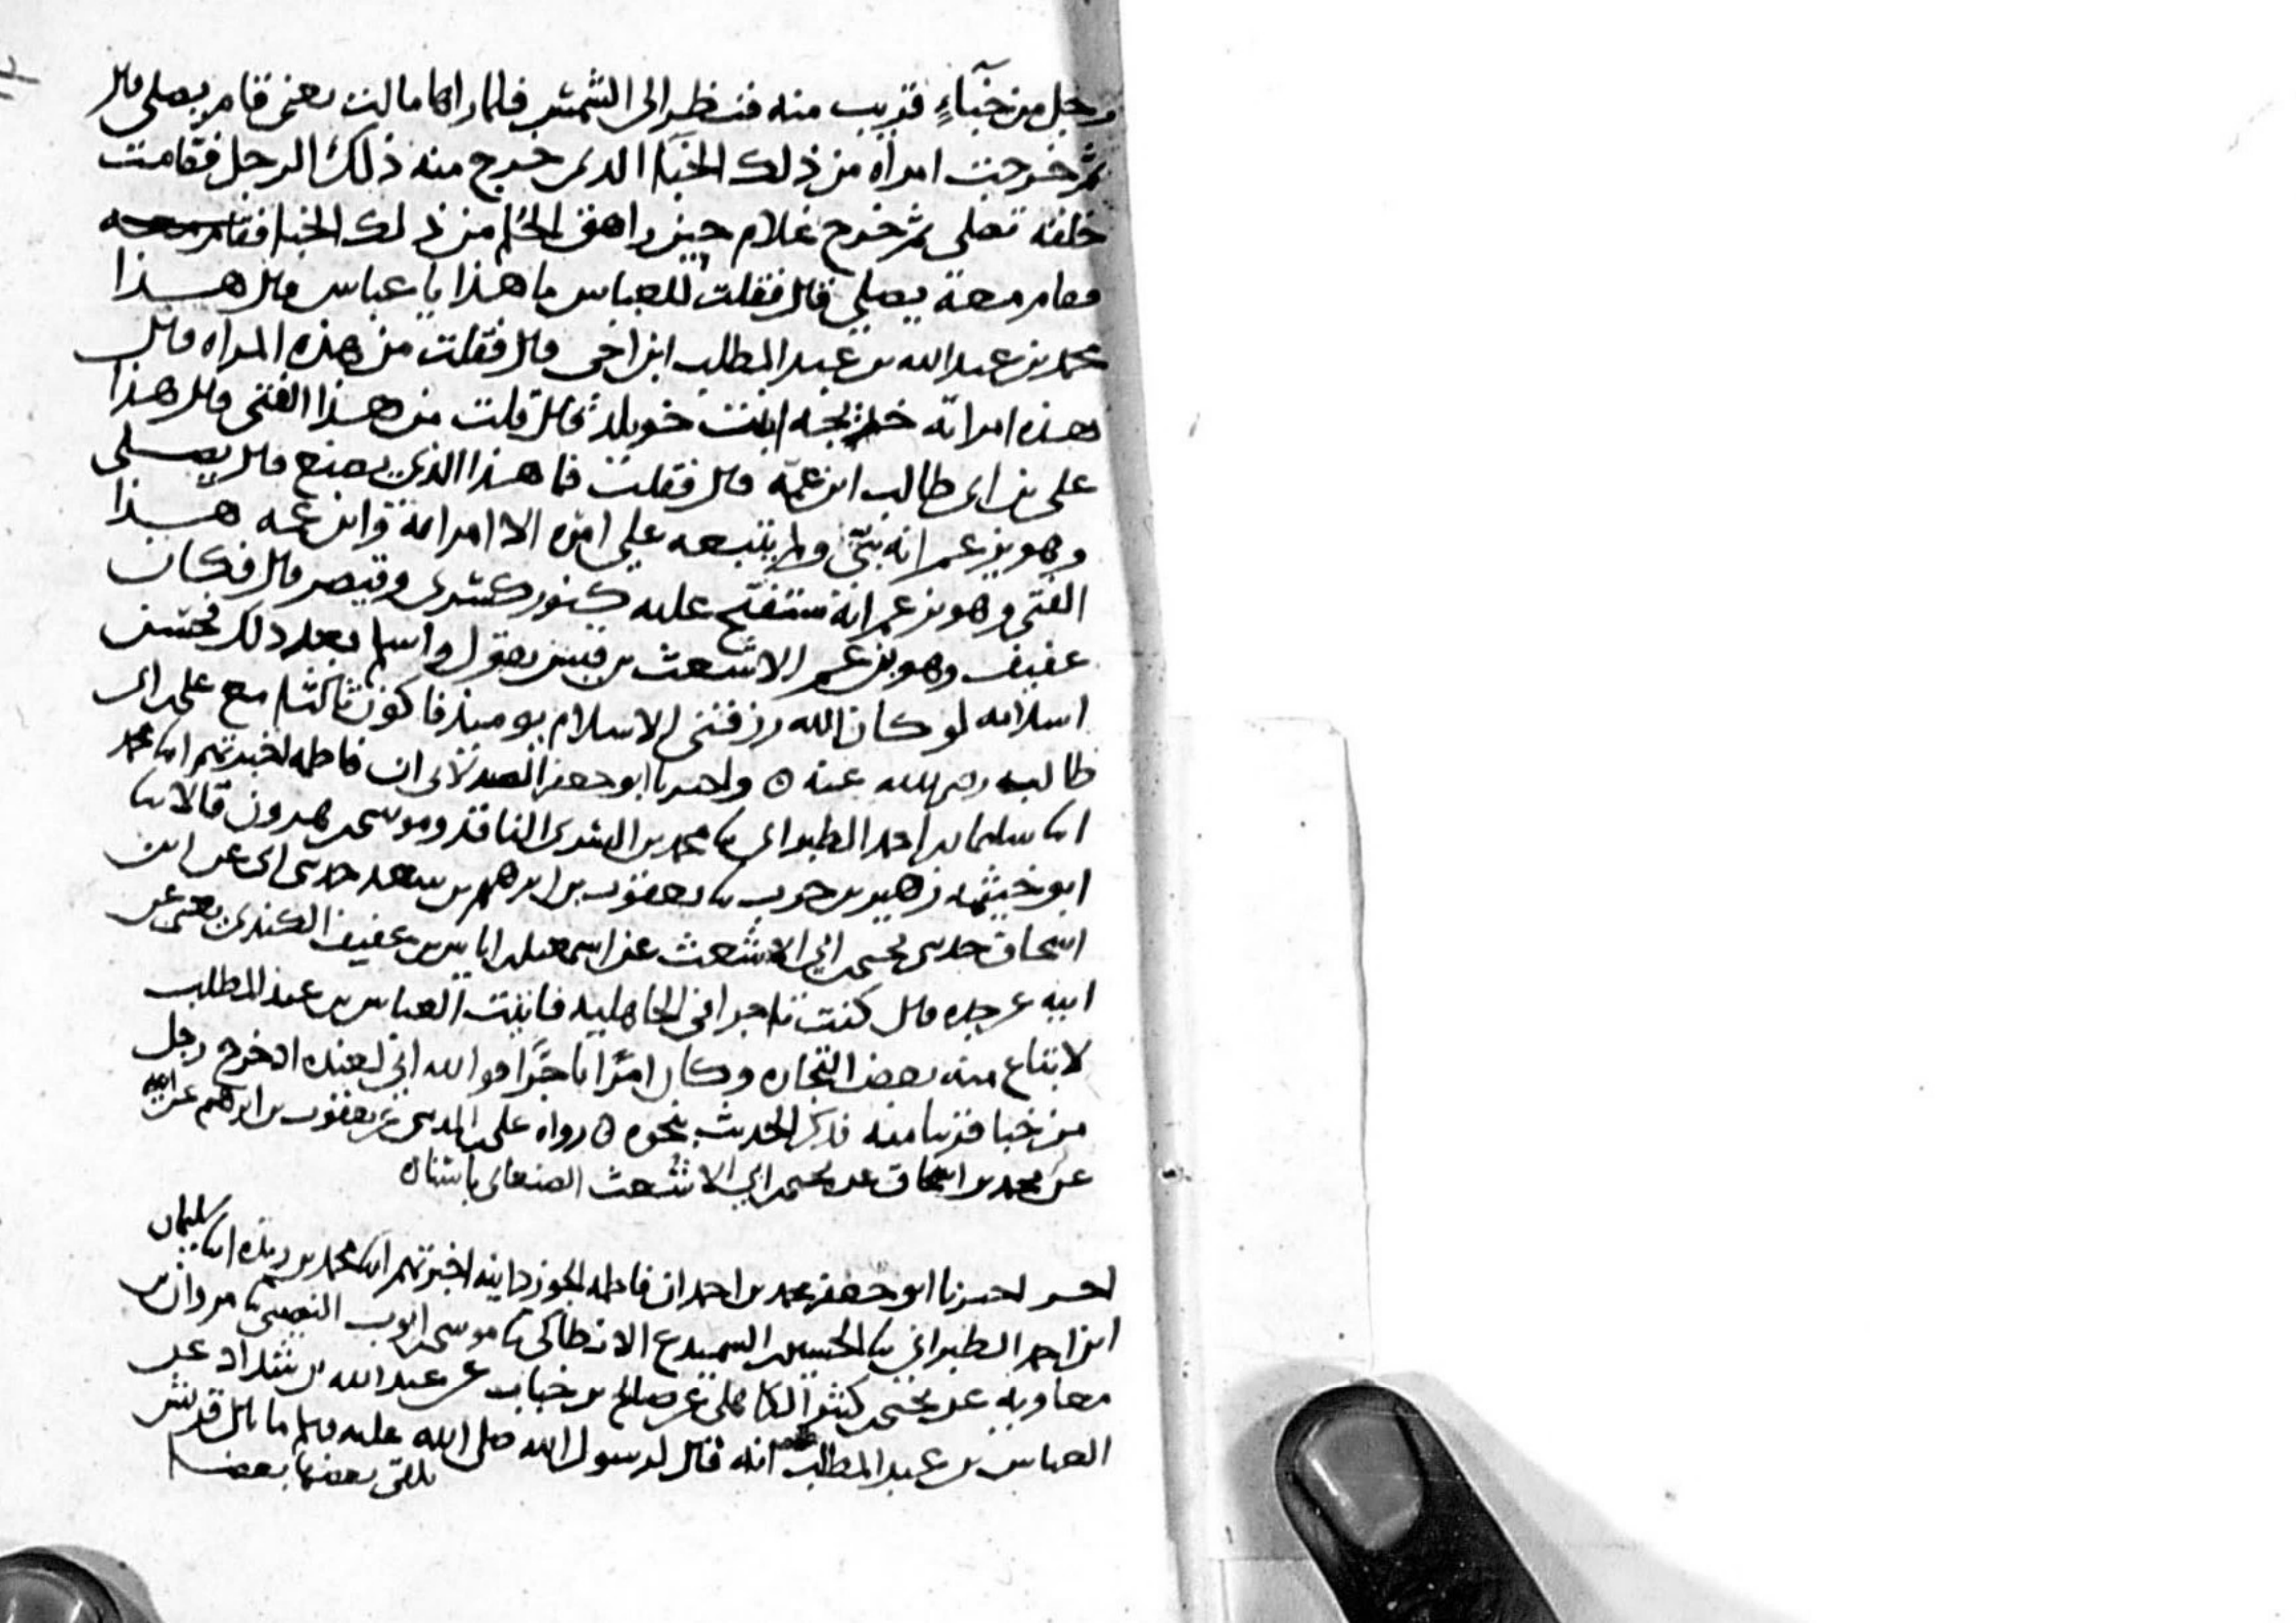 رجل من خباءٍ قريب منه فنظر الى الشمس فلما راها مالت يعني قام يصلي قال
ثم خرجت امراه من ذلك الخباء الذي خرج منه ذلك الرجل فقامت
خلفه تصلي ثم خرج غلام حين راهق الحلم من ذلك الخباء فقام معه
فقام معه يصلي قال فقلت للعباس ما هذا يا عباس قال هذا
محمد بن عبد الله بن عبد المطلب ابن اخي قال فقلت من هذه المراه قال
هذه امراته خديجه ابنت خويلد قال قلت من هذا الفتى قال هذا
علي بن ابي طالب ابن عمه قال فقلت فما هذا الذي يصنع قال يصلي
وهو يزعم انه نبيّ ولم يتبعه على امره الا امراته وابن عمه هذا
الفتى وهو يزعم انه ستفتح عليه كنوز كسرى وقيصر قال فكان
عفيف وهو ابن عم الاشعث بن قيس يقول واسلم بعد ذلك فحسن
اسلامه لو كان الله رزقني الاسلام يومئذ فاكون ثالثا مع علي بن ابي
طالب رضي الله عنه ه واخبرنا ابو جعفر الصيدلاني ان فاطمه اخبرتهم ابنا محمد
ابنا سليمان بن احمد الطبراني نا محمد بن السري الناقد وموسى بن هرون قالا نا
ابو خيثمه زهير بن حرب نا يعقوب بن ابرهيم بن سعد حدثني ابي عن ابن
اسحاق حدثني يحيى بن ابي الاشعث عن اسمعيل بن اياس بن عفيف الكندي يعني عن
ابيه عن جده قال كنت تاجرا في الجاهليه فاتيت العباس بن عبد المطلب
لابتاع منه بعض التجاره وكان امرًا تاجرًا فوالله اني لعنده اذ خرج رجل
من خبا قريبا منه فذكر الحديث بنحوه ه رواه علي بن المديني عن يعقوب بن ابرهيم عن ابيه
عن محمد بن اسحاق عن يحيى بن ابي الاشعث باسناده
سليمان
اخر اخبرنا ابو جعفر محمد بن احمد ان فاطمه الجوزدانيه اخبرتهم ابنا محمد بن ريذه ابنا
ابن احمد الطبراني نا الحسين بن السميدع الانطاكي نا موسى بن ايوب النصيبي نا مروان بن
معاويه عن يحيى بن كثير الكاهلي عن صالح بن خباب عن عبد الله بن شداد عن
العباس بن عبد المطلب انه قال لرسول الله صلى الله عليه وسلم ما بال قريش
تلقى بعضها بعضا